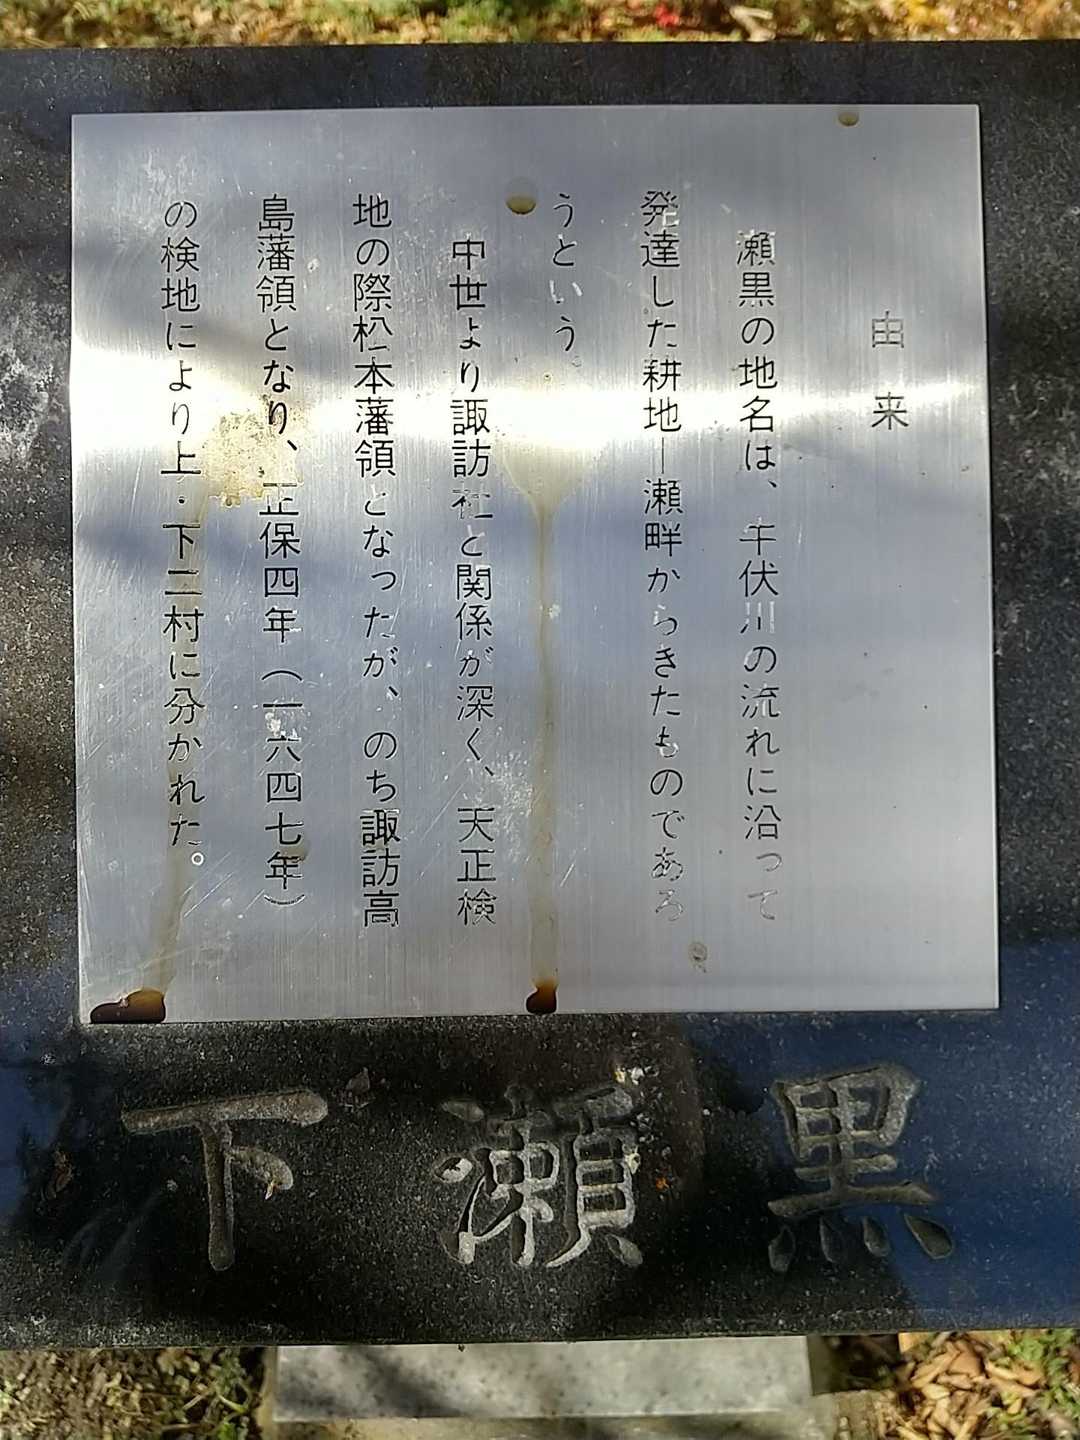 由来
瀬黒の地名は、牛伏川の流れに沿って
発達した耕地―瀬畔からきたものであろ
うという。
中世より諏訪社と関係が深く、天正検
地の際松本藩領となったが、のち諏訪高
島藩領となり、正保四年（一六四七年）
の検地により上・下二村に分かれた。
下瀬黒